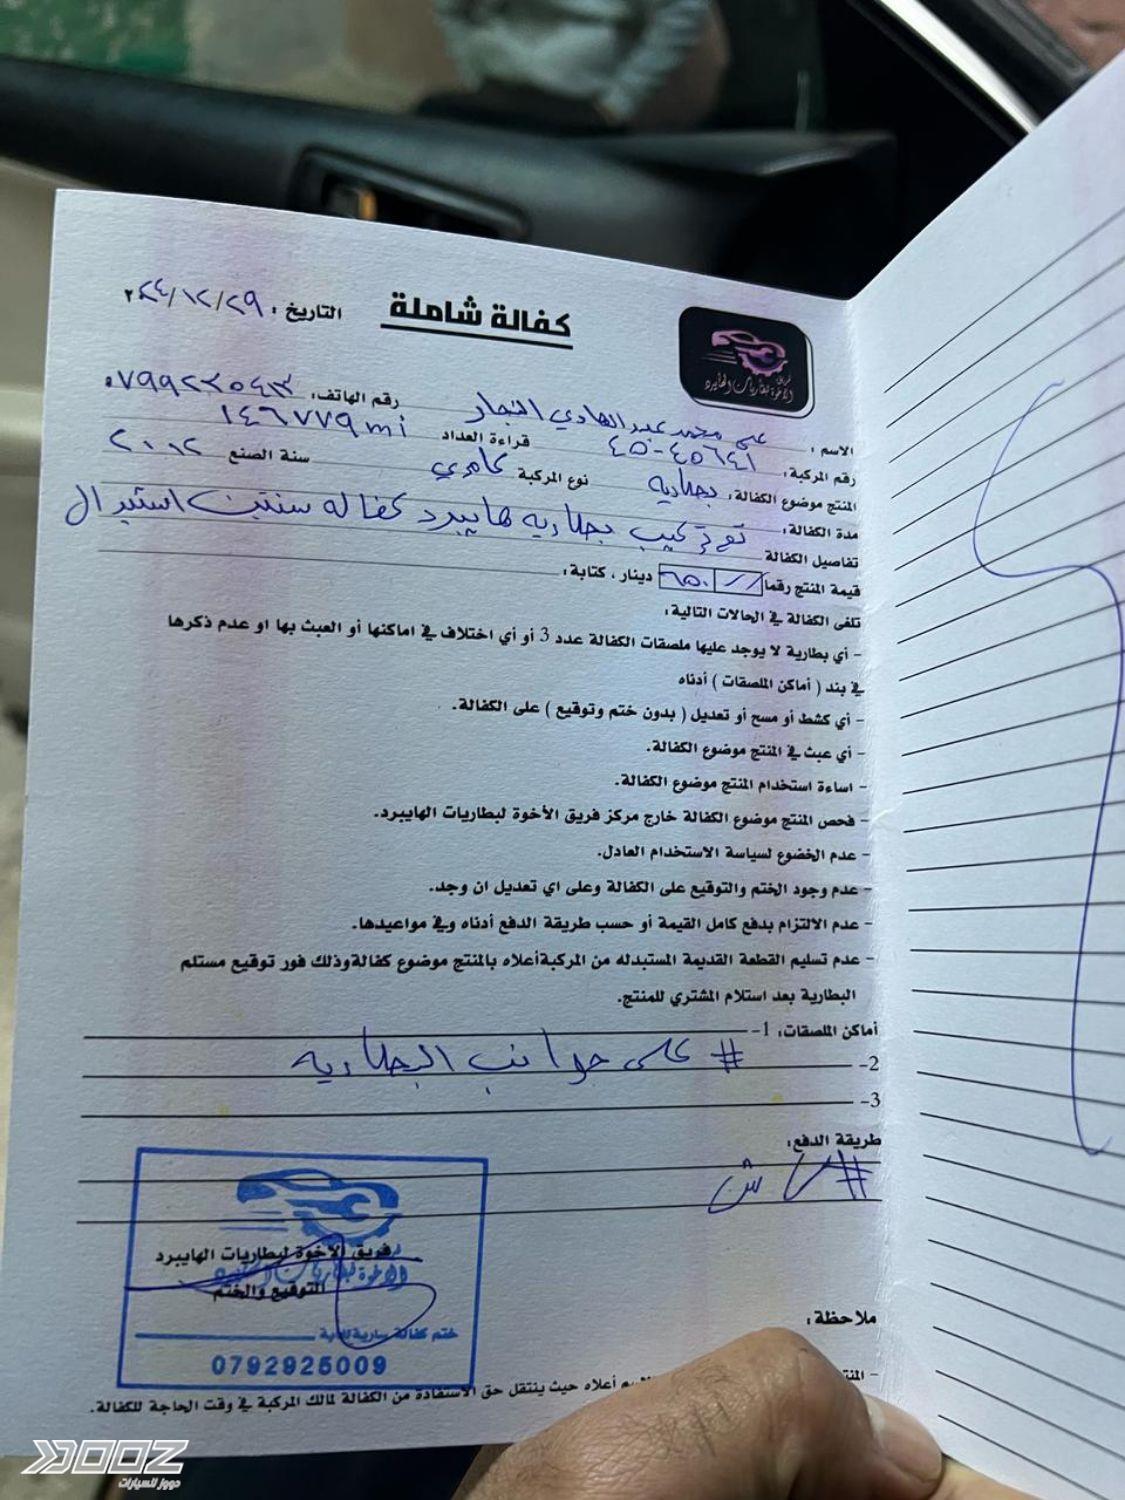 كفالة شاملة
التاريخ : ٢٠٢٤/١٢/٢٩
الأخوة لبطاريات الهايبرد
الاسم : علي محمد عبد الهادي النجار رقم الهاتف:
رقم المركبة: ٤٥-٤٥٦٤١ قراءة العداد ١٤٦٧٧٩ mi
المنتج موضوع الكفالة: بطاريه نوع المركبة كامري سنة الصنع ٢٠١٢
مدة الكفالة:
تفاصيل الكفالة تم تركيب بطاريه هايبرد كفاله سنتين استبدال
قيمة المنتج رقما ٦٥٠ دينار ، كتابة:
تلغى الكفالة في الحالات التالية:
- أي بطارية لا يوجد عليها ملصقات الكفالة عدد 3 أو أي اختلاف في اماكنها أو العبث بها او عدم ذكرها
في بند ( أماكن الملصقات ) أدناه
- أي كشط أو مسح أو تعديل ( بدون ختم وتوقيع ) على الكفالة.
- أي عبث في المنتج موضوع الكفالة.
- اساءة استخدام المنتج موضوع الكفالة.
- فحص المنتج موضوع الكفالة خارج مركز فريق الأخوة لبطاريات الهايبرد.
- عدم الخضوع لسياسة الاستخدام العادل.
- عدم وجود الختم والتوقيع على الكفالة وعلى اي تعديل ان وجد.
- عدم الالتزام بدفع كامل القيمة أو حسب طريقة الدفع أدناه وفي مواعيدها.
- عدم تسليم القطعة القديمة المستبدله من المركبة أعلاه بالمنتج موضوع كفالة وذلك فور توقيع مستلم
البطارية بعد استلام المشتري للمنتج.
أماكن الملصقات: 1-
2- # على جوانب البطاريه
3-
طريقة الدفع:
# كاش
فريق الأخوة لبطاريات الهايبرد
التوقيع والختم
ختم كفالة سارية لغاية
0792925009
ملاحظة :
أعلاه حيث ينتقل حق الاستفادة من الكفالة لمالك المركبة في وقت الحاجة للكفالة.
DOOZ
دووز للسيارات